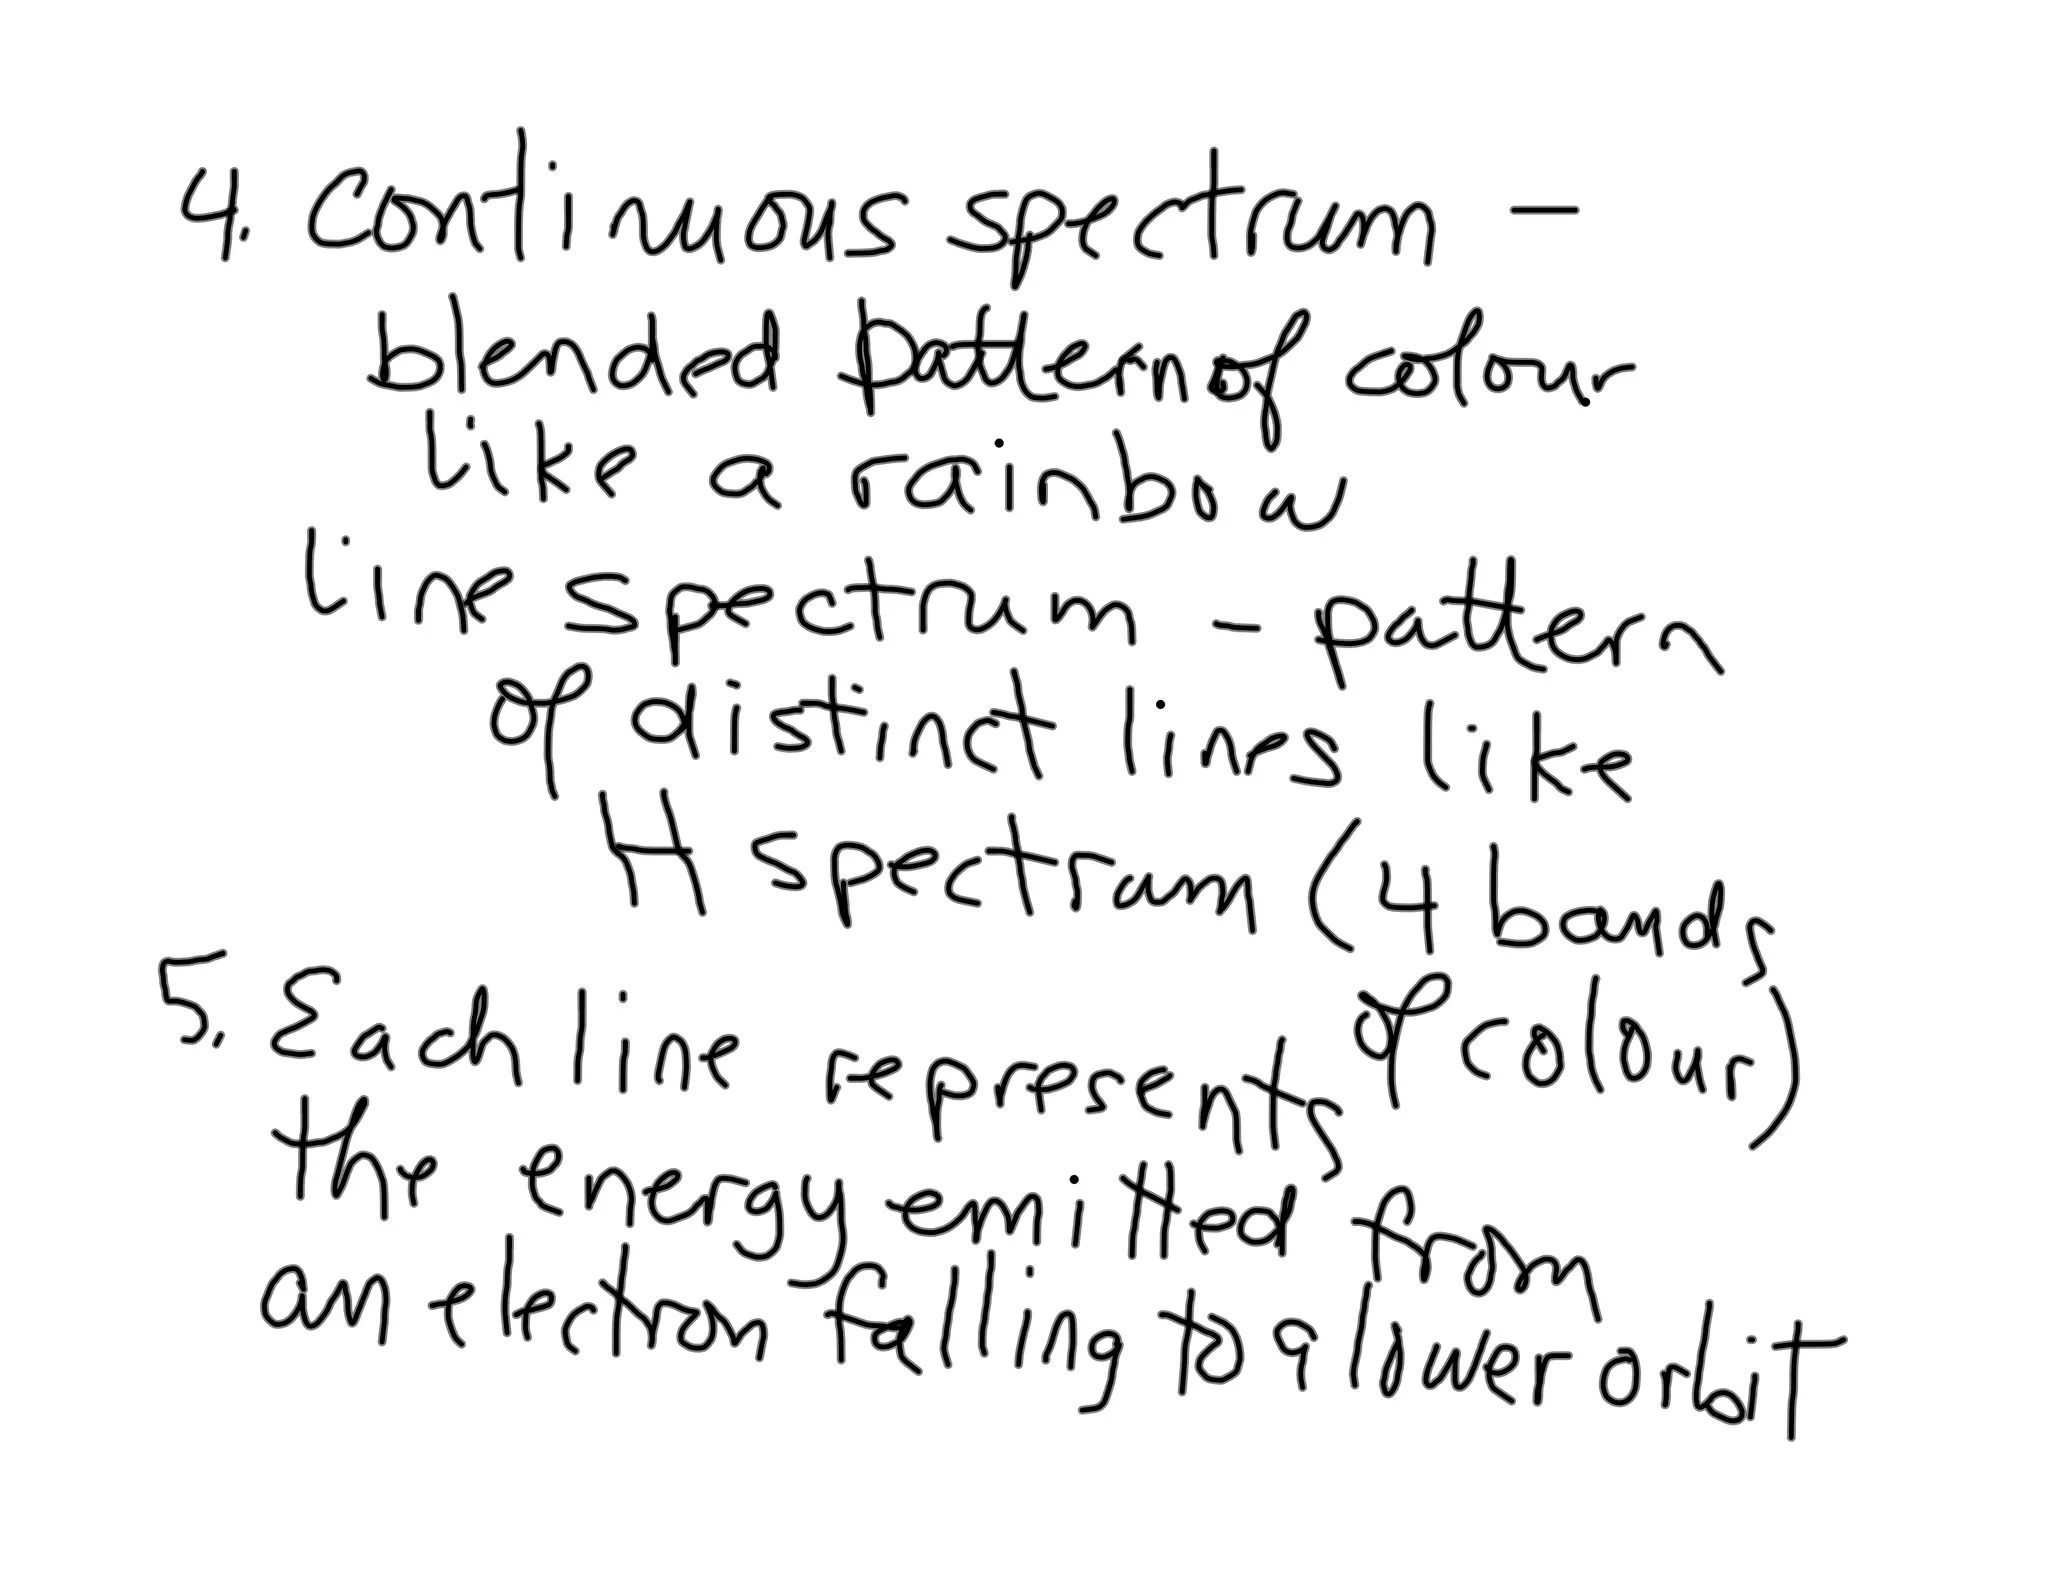 4. Continuous spectrum -
blended pattern of colour
like a rainbow
line spectrum - pattern
of distinct lines like
H spectrum (4 bands
of colour)
5. Each line represents
the energy emitted from
an electron falling to a lower orbit